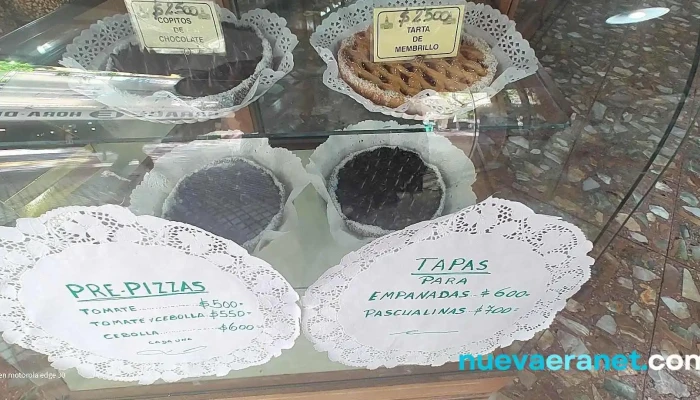 $2500
COPITOS
DE
CHOCOLATE
$2500
TARTA
DE
MEMBRILLO
HORA
PRE-PIZZAS
TOMATE ........ $500-
TOMATE/CEBOLLA $550-
CEBOLLA ........ $600-
CADA UNA
TAPAS
PARA
EMPANADAS - $600-
PASCUALINAS - $700-
en motorola edge 30
nuevaeranet.com